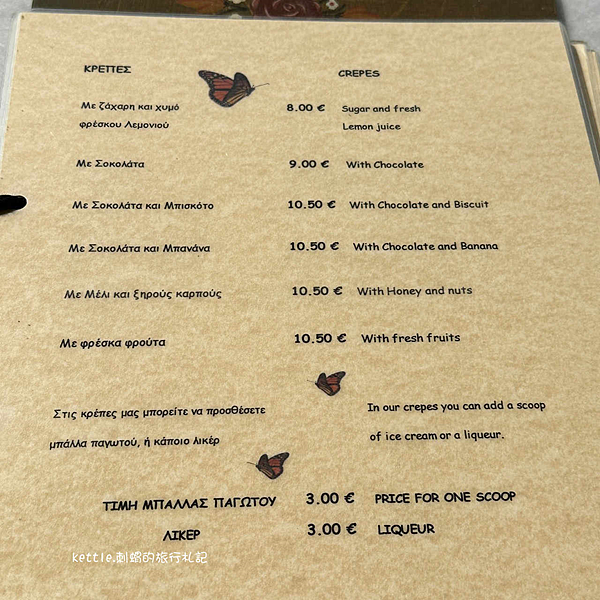 ΚΡΕΠΕΣ CREPES
Με ζάχαρη και χυμό 8.00 € Sugar and fresh
φρέσκου Λεμονιού Lemon juice
Με Σοκολάτα 9.00 € With Chocolate
Με Σοκολάτα και Μπισκότο 10.50 € With Chocolate and Biscuit
Με Σοκολάτα και Μπανάνα 10.50 € With Chocolate and Banana
Με Μέλι και ξηρούς καρπούς 10.50 € With Honey and nuts
Με φρέσκα φρούτα 10.50 € With fresh fruits
Στις κρέπες μας μπορείτε να προσθέσετε In our crepes you can add a scoop
μπάλλα παγωτού, ή κάποιο λικέρ of ice cream or a liqueur.
ΤΙΜΗ ΜΠΑΛΛΑΣ ΠΑΓΩΤΟΥ 3.00 € PRICE FOR ONE SCOOP
ΛΙΚΕΡ 3.00 € LIQUEUR
kettle.刺蝟的旅行札記